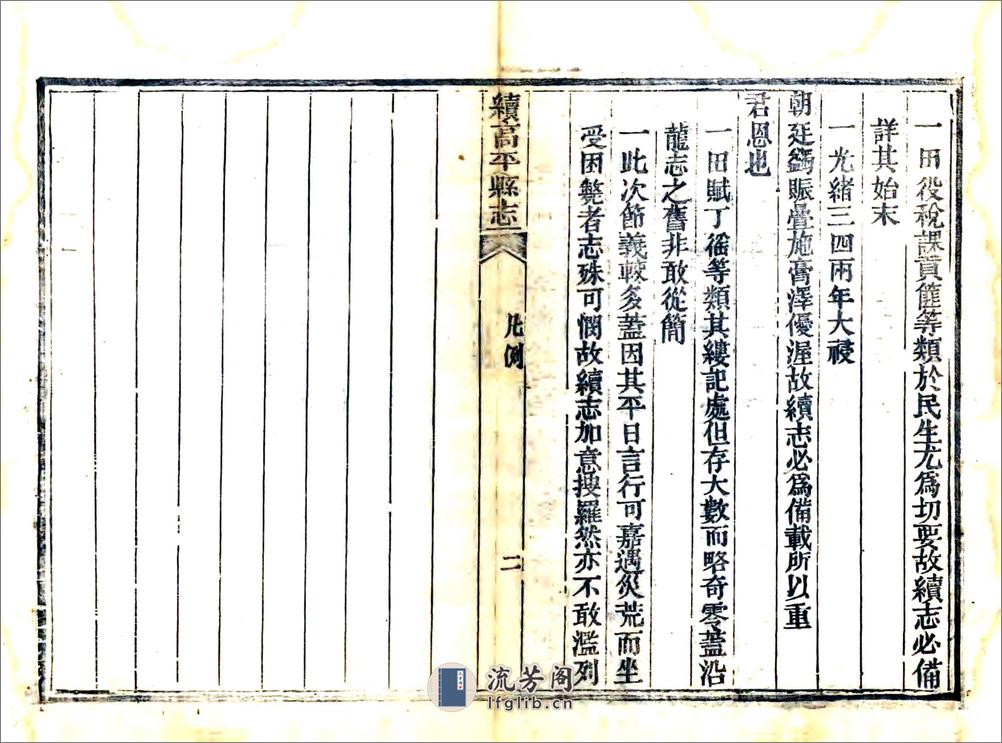 一田役稅課貢篚等類於民生尤爲切要故續志必備
詳其始末
一光緒三四兩年大祲
朝廷蠲賑疊施膏澤優渥故續志必爲備載所以重
君恩也
一田賦丁徭等類其縷記處但存大數而略奇零蓋沿
龍志之舊非敢從簡
一此次節義較多蓋因其平日言行可嘉遇災荒而坐
受困斃者志殊可憫故續志加意搜羅然亦不敢濫列
續高平縣志
凡例
二
流芳阁
lfglib.cn